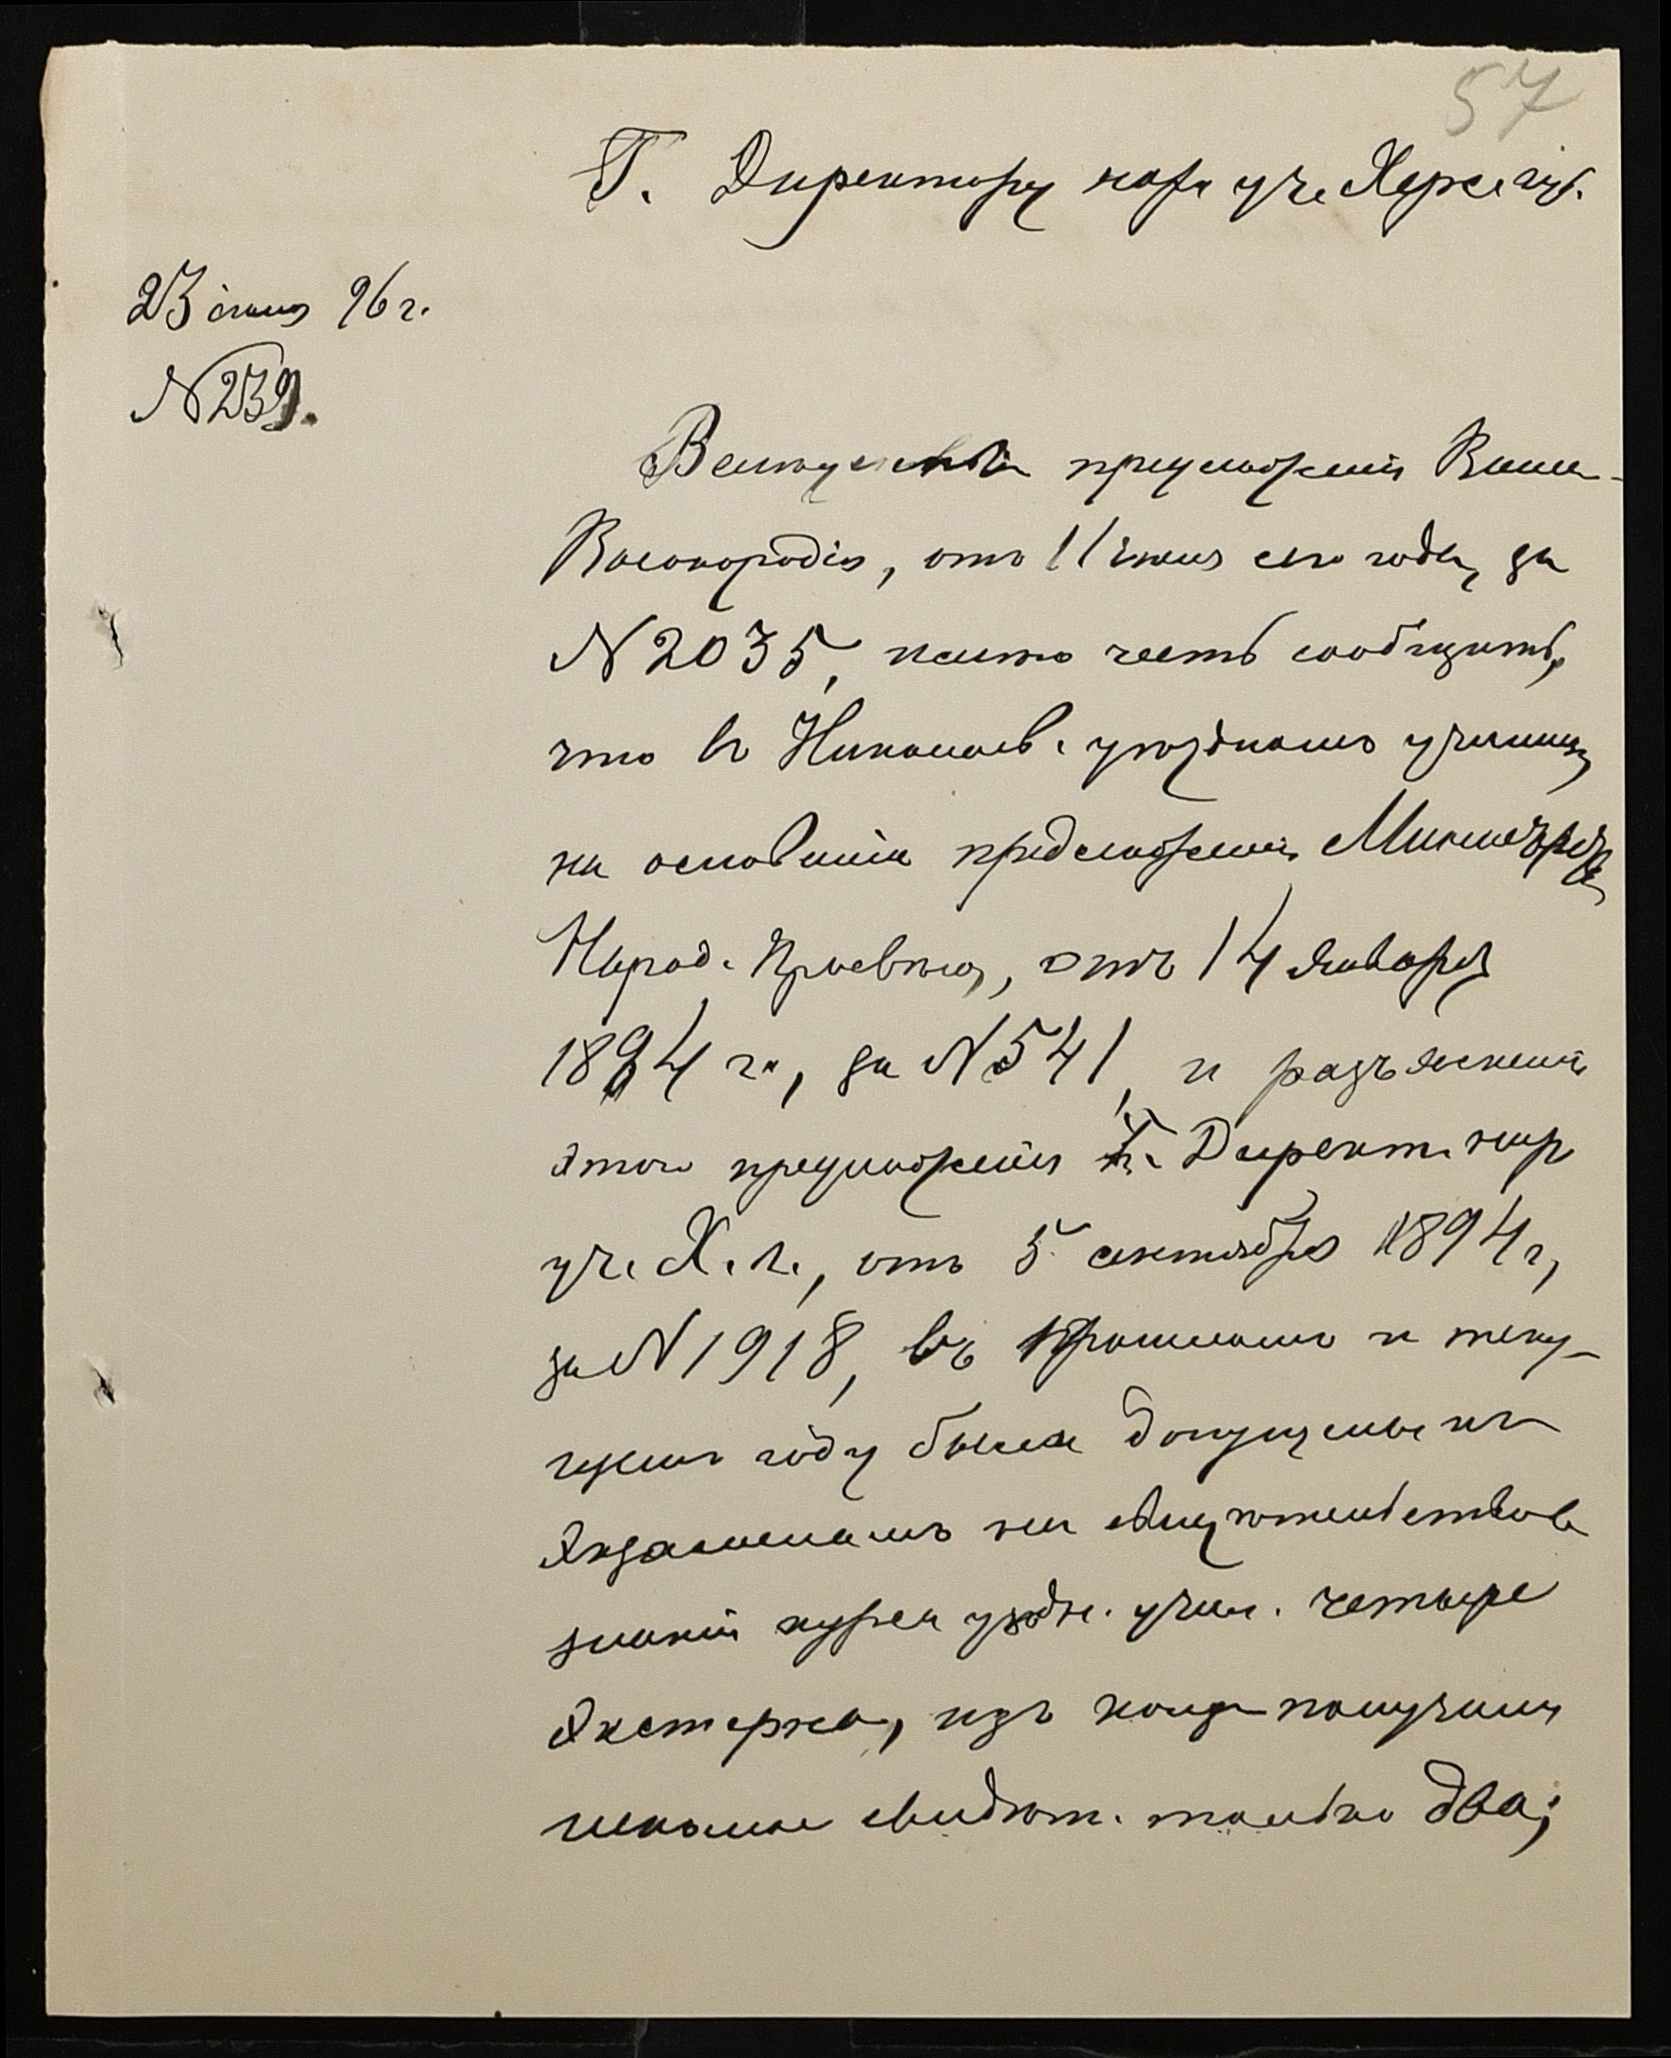 57
Г. Директору нар. уч. Херс. губ.
23 іюня 96 г.
N 239.
Вслѣдствіе предложенія Вашего
Высокородія, отъ 11 іюня сего года, за
N 2035, имѣю честь сообщить,
что въ Николаев. уѣздномъ училищѣ
на основаніи предложенія Министерства
Народ. Просвѣщ., отъ 14 января
1894 г., за N 541, и разъясненія
этого предложенія Г. Директ. нар.
уч. Х. г., отъ 5 сентября 1894 г.,
за N 1918, въ прошломъ и теку-
щемъ году были допущены къ
экзаменамъ на
знаній курса уѣздн. учил. четыре
экстерна, изъ коихъ получили
свидѣт. только два;